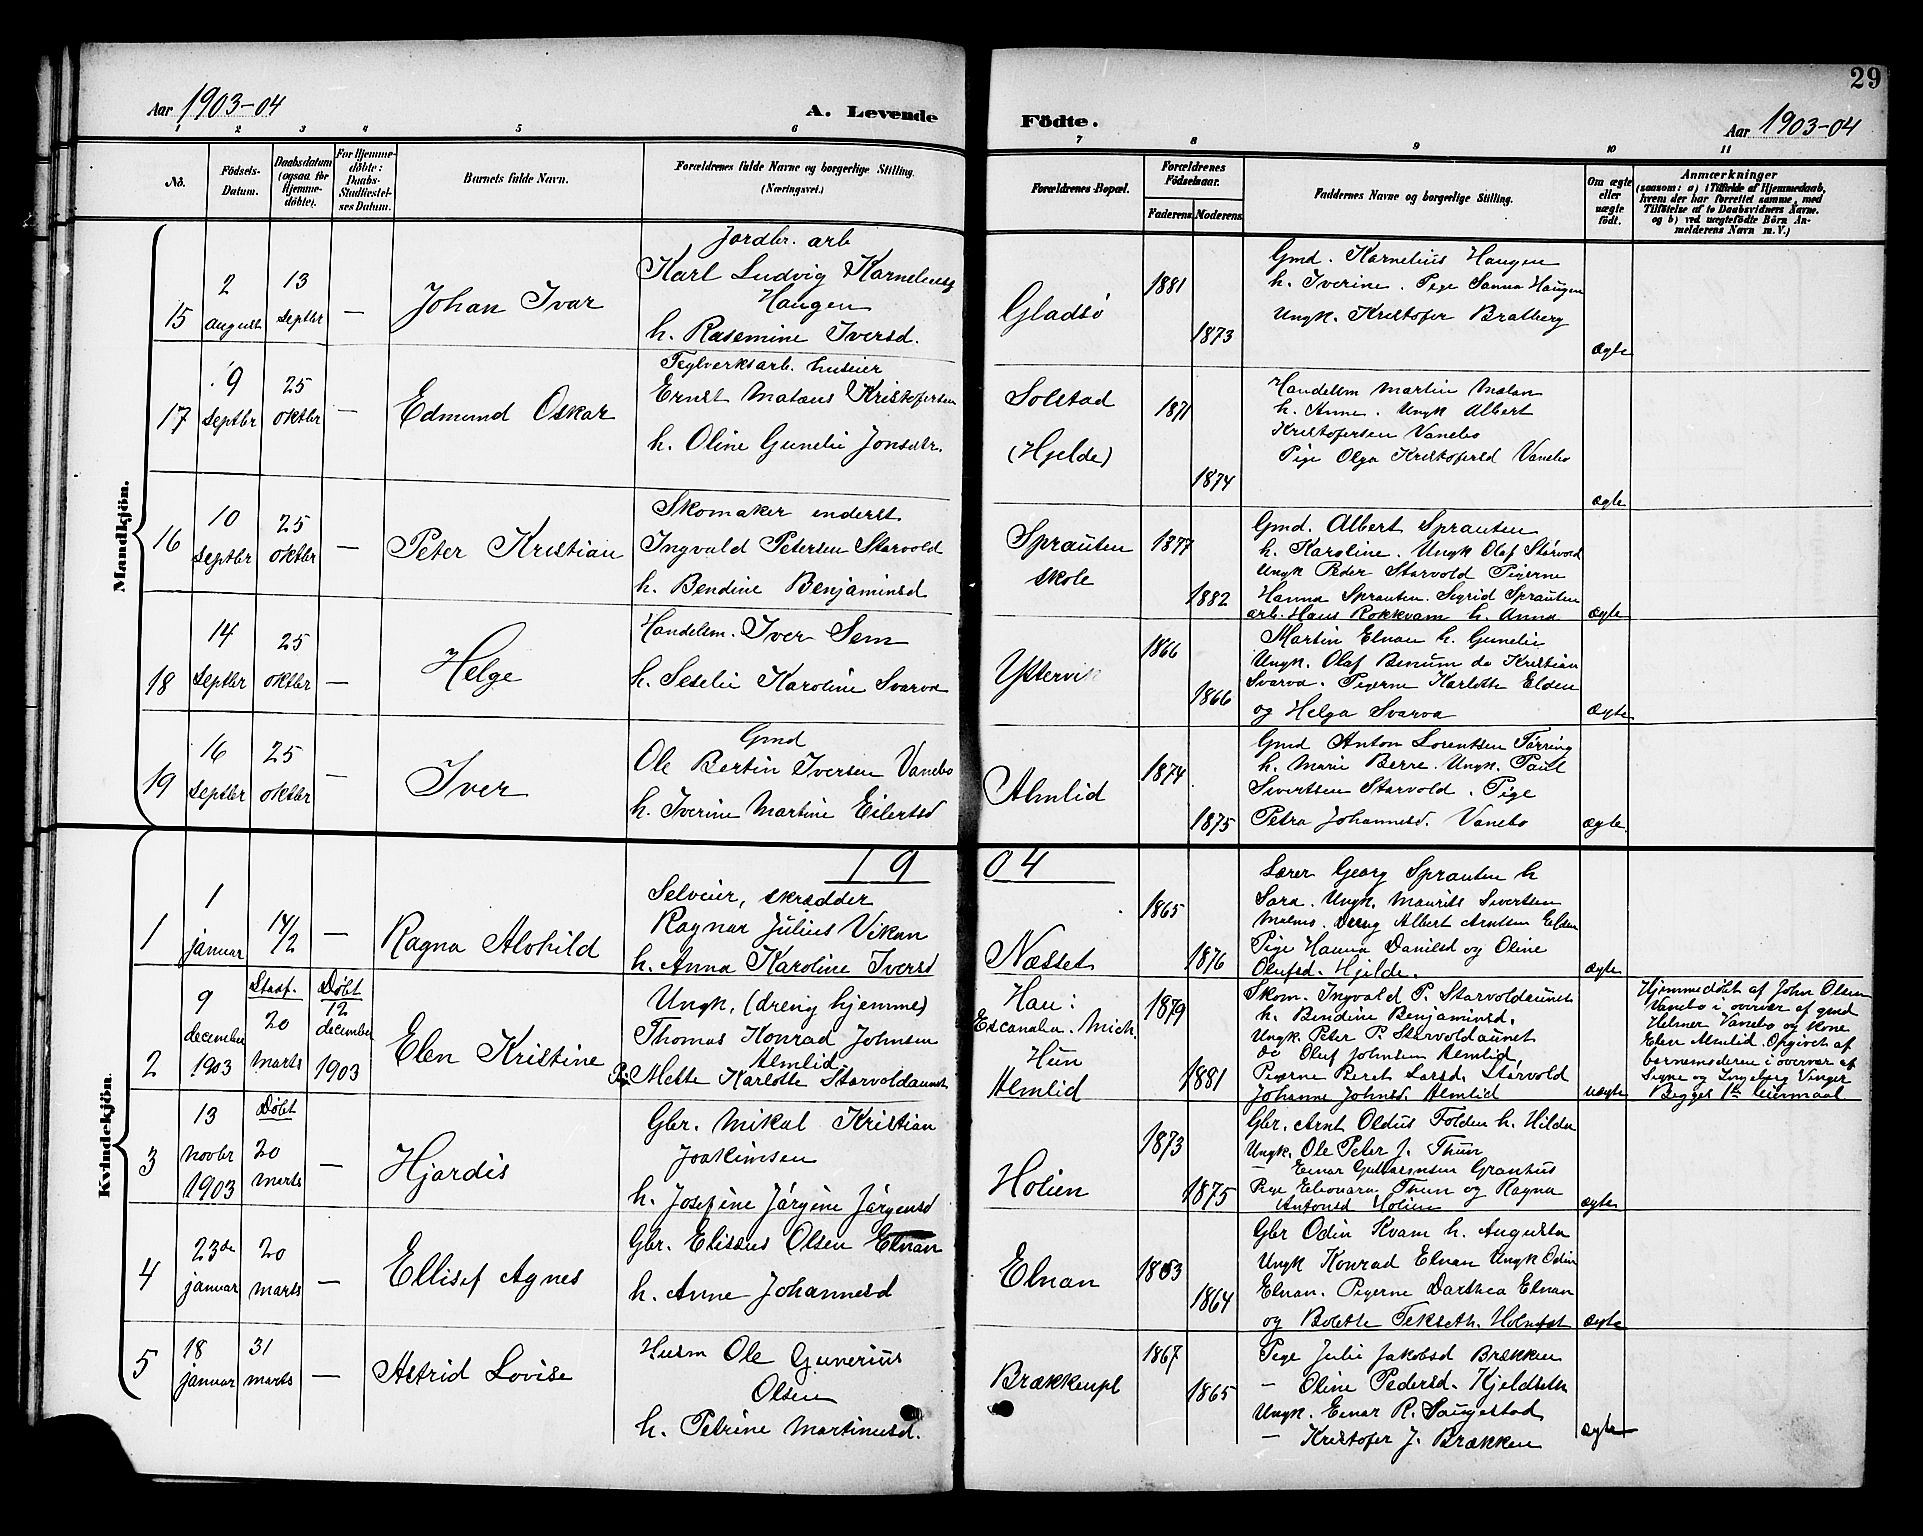 29
Aar 1903-04
A. Levende
Födte.
Aar 1903-04
1 2 3 4 5 6 7 8 9 10 11
No.
Födsels-Datum.
Daabsdatum (ogsaa for Hjemme-döbte).
For Hjemme-döbte: Daabs-Stadfæstel-ses Datum.
Barnets fulde Navn.
Forældrenes fulde Navne og borgerlige Stilling.
(Næringsvei.)
Forældrenes Bopæl.
Forældrenes Födselsaar.
Faderens Moderens
Faddernes Navne og borgerlige Stilling.
Om ægte eller uægte födt.
Anmærkninger
(saasom: a) i Tilfælde af Hjemmedaab,
hvem der har forrettet samme, med
Tilföielse af to Daabsvidners Navne,
og b) ved uægtefödte Börn An-
melderens Navn m. V.)
Mandkjön.
15
2 august
13 septbr
—
Johan Ivar
Jordbr. arb
Karl Ludvig Karneliuss
Haugen
h. Rasemine Iversd.
Gladsø
1881
1873
Gmd. Karnelius Haugen
h. Iverine. Pige Sanna Haugen
Ungk. Kristofer Bratberg
ægte
17
9 septbr
25 oktbr
—
Edmund Oskar
Teglverksarb. huseier
Ernst Mataus Kristofersen
h. Oline Gunelie Jonsdtr.
Solstad
(Hjelde)
1871
1874
Handelsm Martin Malan
h. Anne. Ungk Albert
Kristofersen Vanebo
Pige Olga Kristofersd Vanebo
ægte
16
10 septbr
25 oktbr
—
Peter Kristian
Skomaker inderst
Ingvald Petersen Starvold
h. Bendine Benjaminsd
Sprauten
skole
1877
1882
Gmd. Albert Sprauten
h. Karoline. Ungk Olaf Starvold
Ungk Peder Starvold Pigerne
Hanna Sprauten. Sigrid Sprauten
arb. Hans Rokkvam h. Anna
ægte
18
14 septbr
25 oktbr
—
Helge
Handelsm. Iver Sem
h. Seselie Karoline Svarva
Yttervik
1866
1866
Martin Elnan h. Gunelie
Ungk. Olaf Benum do Kristian
Svarva. Pigerne Karlotte Elden
og Helga Svarva
ægte
19
16 septbr
25 oktbr
—
Iver
Gmd
Ole Bertin Iversen Vanebo
h. Iverine Martine Eilertsd
Almlid
1874
1875
Gmd Anton Lorentsen Tørring
h. Marie Berre. Ungk. Paul
Sivertsen Starvold. Pige
Petra Johannesd. Vanebo
ægte
1904
Kvindekjön.
1
1 januar
14/2
—
Ragna Alohild
Selveier, skrædder
Ragnar Julius Vikan
h. Anna Karoline Iversd
Næsset
1865
1876
Lærer Georg Sprauten h
Sara. Ungk. Maurits Sivertsen
Malmo. Dreng Albert Arntsen Elden
Pige Hanna Danielsd og Oline
Olufsd. Hjelde.
ægte
2
9 december 1903
Stadf. 20 marts
Døbt 12 december 1903
Elen Kristine
Ungk. (dreng hjemme)
Thomas Konrad Johnsen
Almlid
Pig. Mette Karlotte Starvoldaunet
Han:
Escanaba. Mich.
Hun
Almlid
1879
1881
Skom. Ingvald P. Starvoldaunet
h. Bendine Benjaminsd.
Ungk. Peter P. Starvoldaunet
do Oluf Johnsen Almlid.
Pigerne Beret Larsd. Starvold
Johanne Johnsd. Almlid
uægte
Hjemmedøbt af John Olsen
Vanebo i overvær af gmd
Helmer Vanebo og kone
Elen Almlid. Opgivet af
barnemoderen i overvær af
Signe og Ingeborg Vinger
Begges 1ste leiermaal
3
13 novbr 1903
Døbt 20 marts
—
Hjørdis
Gbr. Mikal Kristian
Joakimsen
h. Josefine Jørgine Jørgensd
Holien
1873
1875
Gbr. Arnt Oldus Folden h. Hilda
Ungk. Ole Peter J. Thun
— Einar Granhus
Pige Eleonora Thun og Ragna
Antonsd Holien
ægte
4
23de januar
20 marts
—
Ellisef Agnes
Gbr. Elisæus Olsen Elnan
h. Anne Johannesd
Elnan
1863
1864
Gbr Odin Kvam h. Augusta
Ungk Konrad Elnan Ungk Odin
Elnan. Pigerne Darthea Elnan
og Bolette Tekseth.
ægte
5
18 januar
31 marts
—
Astrid Lovise
Husm Ole Gunerius
Olsen
h. Petrine Martinusd.
Brækkenpl
1867
1865
Pige Julie Jakobsd Brækken
— Oline Pedersd. Kjeldseth
Ungk. Einar R. Saugestad
— Kristofer J. Brækken
ægte